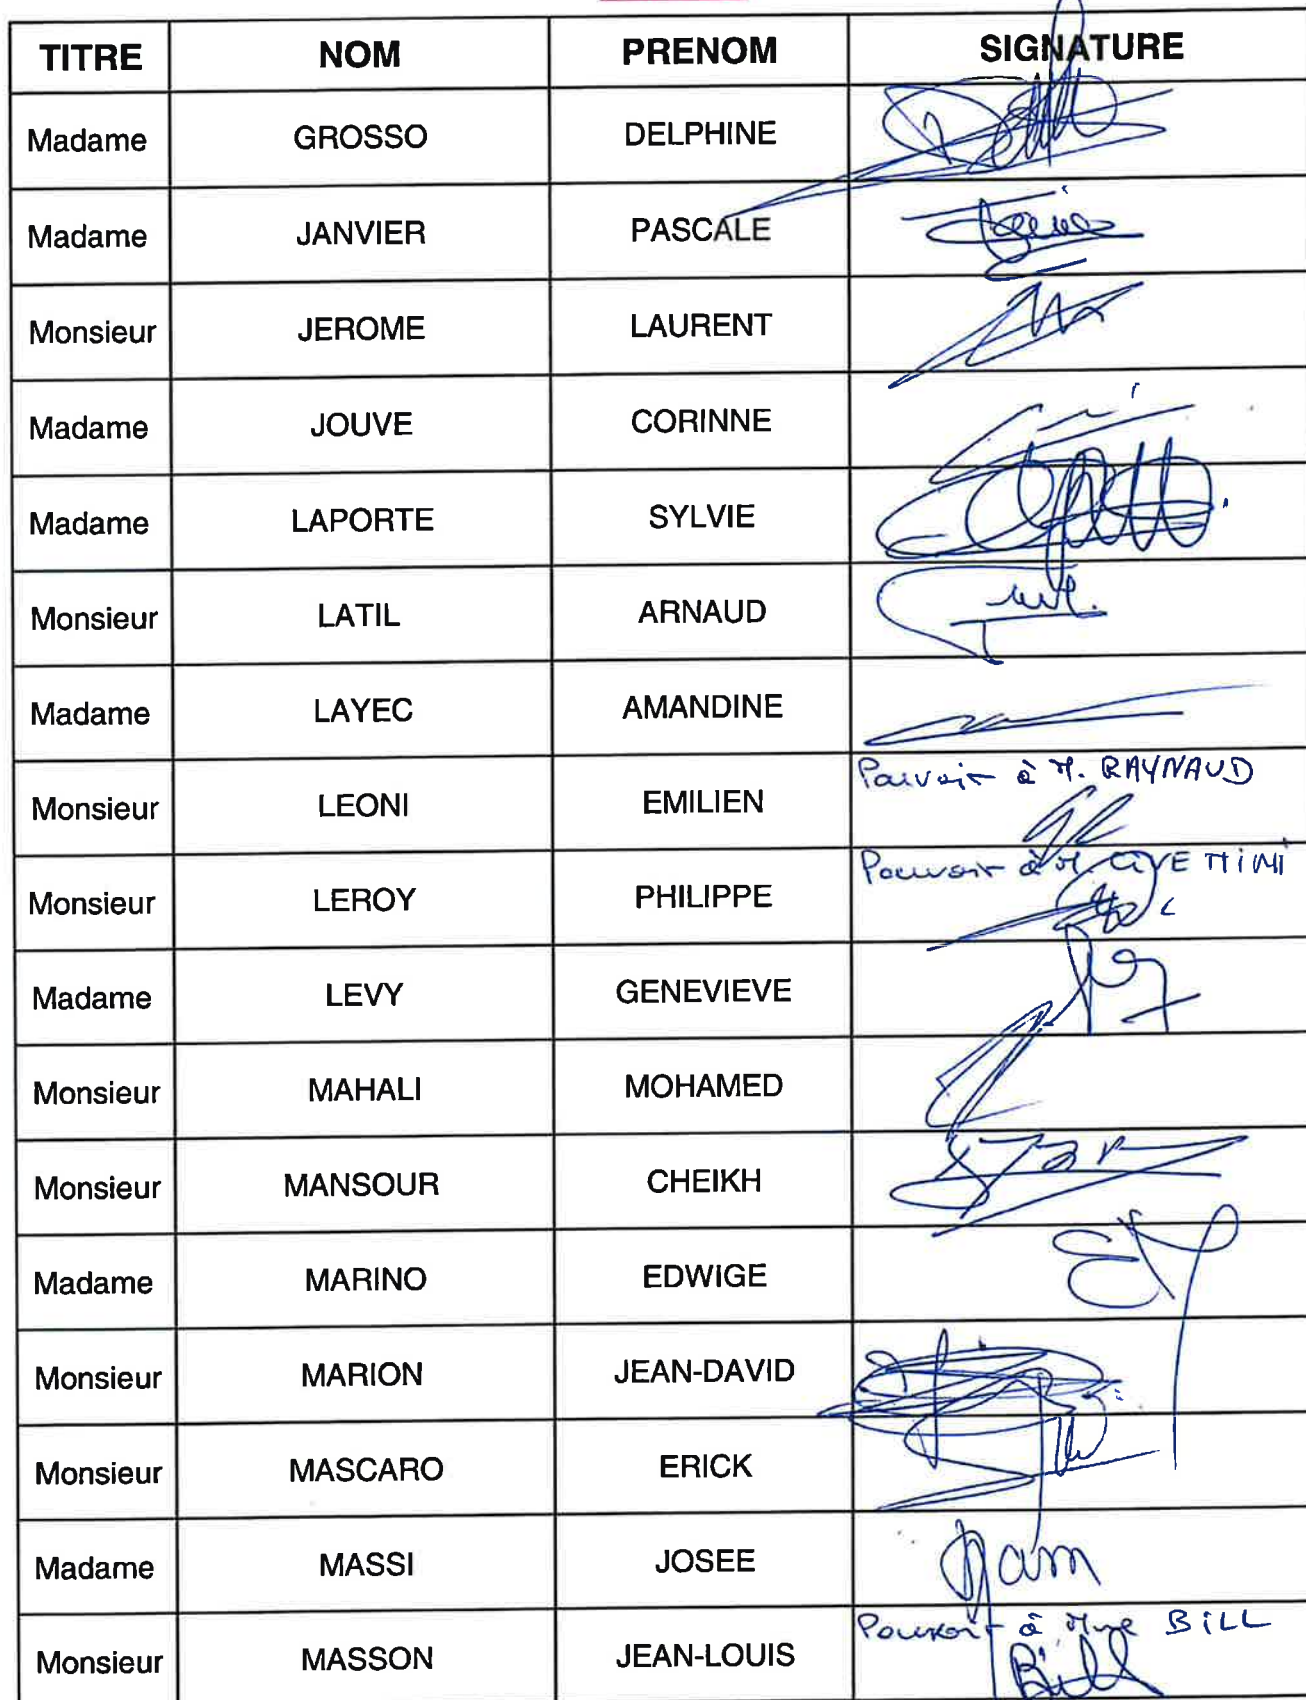 TITRE NOM PRENOM SIGNATURE
Madame GROSSO DELPHINE
Madame JANVIER PASCALE
Monsieur JEROME LAURENT
Madame JOUVE CORINNE
Madame LAPORTE SYLVIE
Monsieur LATIL ARNAUD
Madame LAYEC AMANDINE
Pouvoir à M. RAYNAUD
Monsieur LEONI EMILIEN
Pouvoir à M.
Monsieur LEROY PHILIPPE
Madame LEVY GENEVIEVE
Monsieur MAHALI MOHAMED
Monsieur MANSOUR CHEIKH
Madame MARINO EDWIGE
Monsieur MARION JEAN-DAVID
Monsieur MASCARO ERICK
Madame MASSI JOSEE
Pouvoir à Mme BILL
Monsieur MASSON JEAN-LOUIS